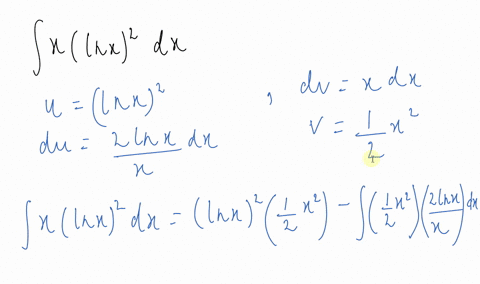 ∫ x (ln x)² dx
u = (ln x)² , dv = x dx
du = 2 ln x / x dx v = 1/2 x²
∫ x (ln x)² dx = (ln x)² (1/2 x²) − ∫ (1/2 x²) (2 ln x / x) dx